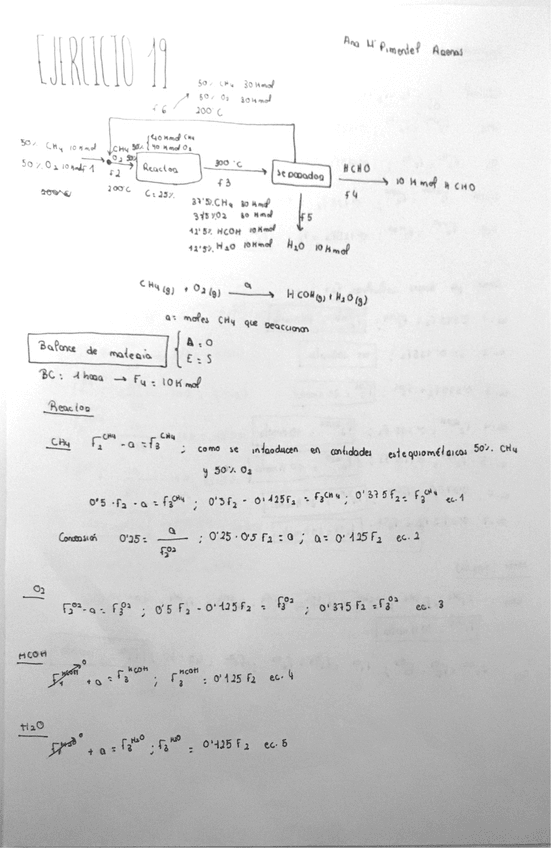 Ana Mª Pimentel Arenas
EJERCICIO 19
50% CH4 30 Kmol
50% O2 30 Kmol
200°C
f6
50% CH4 10 Kmol
50% O2 10 Kmol f1
CH4 50%
O2 50%
40 Kmol CH4
40 Kmol O2
f2
200°C
Reactor
C=25%
300°C
f3
Separador
HCHO
f4
10 Kmol HCHO
37'5% CH4 30 Kmol
37'5% O2 30 Kmol
12'5% HCOH 10 Kmol
12'5% H2O 10 Kmol
f5
H2O 10 Kmol
CH4(g) + O2(g) a → HCOH(g) + H2O(g)
a = moles CH4 que reaccionan
Balance de materia
A = 0
E = S
BC: 1 hora → F4 = 10 Kmol
Reactor
CH4 F2^CH4 - a = F3^CH4 ; como se introducen en cantidades estequiométricas 50% CH4
y 50% O2
0'5 · F2 - a = F3^CH4 ; 0'5 F2 - 0'125 F2 = F3^CH4 ; 0'375 F2 = F3^CH4 ec. 1
Conversión 0'25 = a / F2^O2 ; 0'25 · 0'5 F2 = a ; a = 0'125 F2 ec. 2
O2
F2^O2 - a = F3^O2 ; 0'5 F2 - 0'125 F2 = F3^O2 ; 0'375 F2 = F3^O2 ec. 3
HCOH
+ a = F3^HCOH ; F3^HCOH = 0'125 F2 ec. 4
H2O
+ a = F3^H2O ; F3^H2O = 0'125 F2 ec. 5